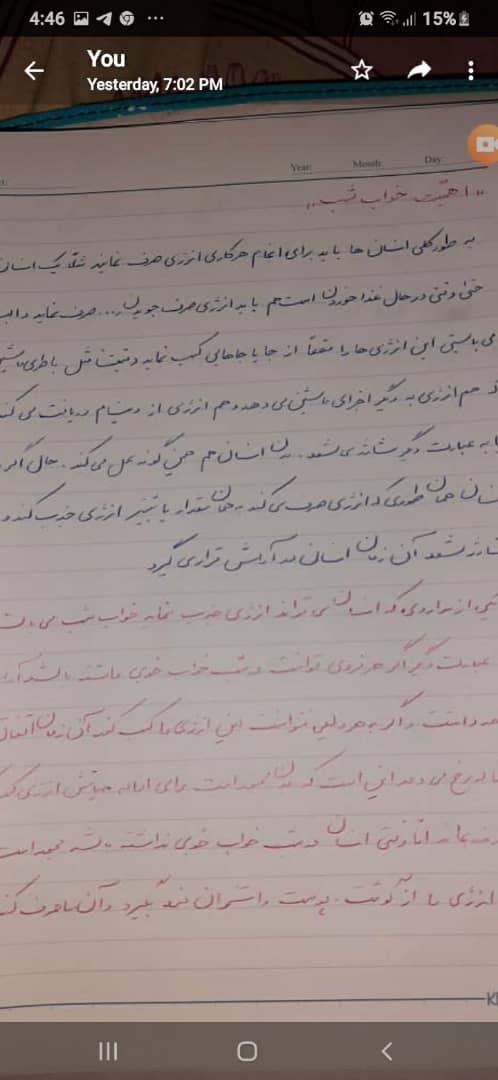 4:46
15%
You
Yesterday, 7:02 PM
Year: Month: Day:
"اهمیت خواب شب"
به طور کلی انسان ها باید برای انجام هر کاری انرژی صرف نمایند مثلا یک انسان
حتی وقتی در حال غذا خوردن است هم باید انرژی صرف جویدن و... صرف نماید و
می بایستی این انرژی ها را متقابلا از جا یا جاهایی کسب نماید مثل باطری ماشین
هم انرژی به دیگر اجزای ماشین می دهد و هم انرژی از دینام دریافت می کند
به عبارت دیگر شارژ می شود. بدن انسان هم همین گونه عمل می کند. حال اگر
همان طوری که انرژی صرف می کند به همان مقدار یا بیشتر انرژی جذب کند و
شارژ شود آن زمان انسان در آرامش قرار می گیرد
از مواردی که انسان می تواند انرژی جذب نماید خواب شب می باشد
عبارت دیگر اگر هر فردی توانست در شب خواب خوبی داشته باشد
و اگر به هر دلیلی نتوانست این انرژی را کسب کند آن زمان
رخ می دهد این است که بدن مجبور است برای ادامه حیاتش انرژی
نماید اما وقتی انسان در شب خواب خوبی نداشته باشد مجبور است
انرژی را از گوشت، پوست و استخوان بگیرد و آن را صرف